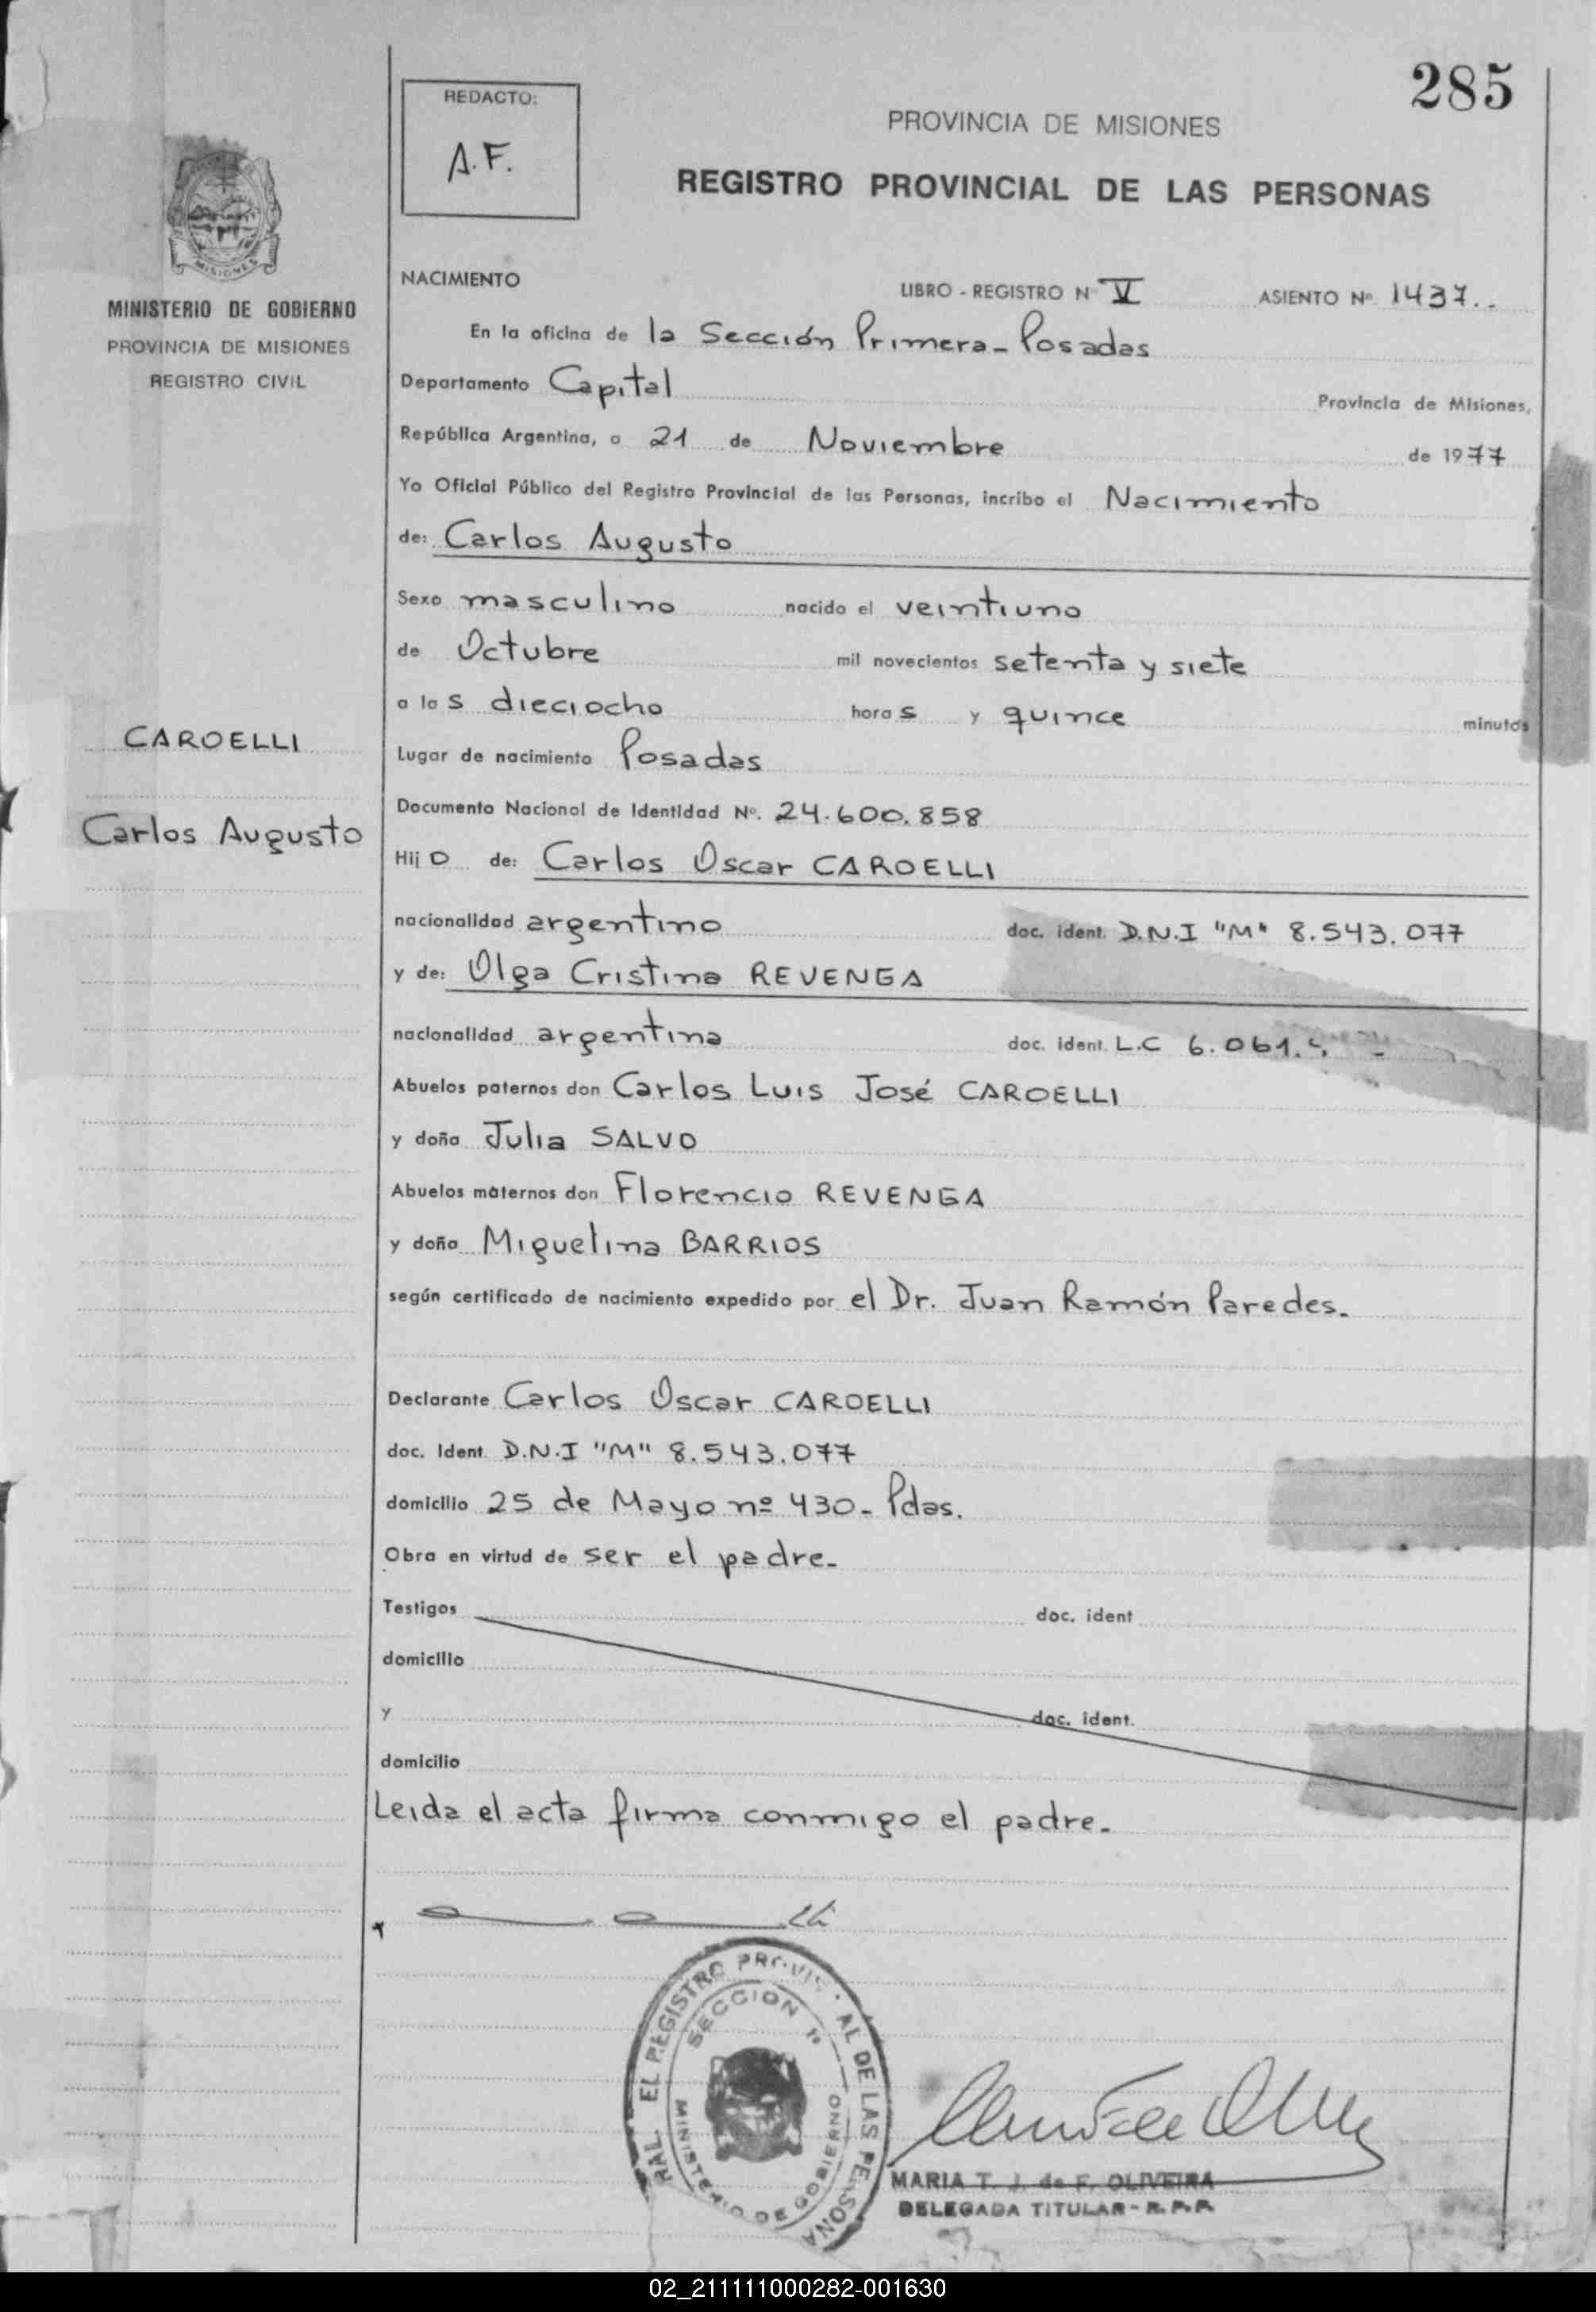 285
REDACTO:
A.F.
PROVINCIA DE MISIONES
REGISTRO PROVINCIAL DE LAS PERSONAS
MISIONES
MINISTERIO DE GOBIERNO
PROVINCIA DE MISIONES
REGISTRO CIVIL
NACIMIENTO LIBRO - REGISTRO Nº V ASIENTO Nº 1437..
En la oficina de la Sección Primera - Posadas
Departamento Capital Provincia de Misiones,
República Argentina, a 21 de Noviembre de 1977
Yo Oficial Público del Registro Provincial de las Personas, incribo el Nacimiento
de: Carlos Augusto
Sexo masculino nacido el veintiuno
de Octubre mil novecientos setenta y siete
a las dieciocho horas y quince minutos
CAROELLI
Lugar de nacimiento Posadas
Documento Nacional de Identidad Nº. 24.600.858
Carlos Augusto
Hijo de: Carlos Oscar CAROELLI
nacionalidad argentino doc. ident. D.N.I "M" 8.543.077
y de: Olga Cristina REVENGA
nacionalidad argentina doc. ident. L.C 6.061.
Abuelos paternos don Carlos Luis José CAROELLI
y doña Julia SALVO
Abuelos maternos don Florencio REVENGA
y doña Miguelina BARRIOS
según certificado de nacimiento expedido por el Dr. Juan Ramón Paredes.
Declarante Carlos Oscar CAROELLI
doc. Ident. D.N.I "M" 8.543.077
domicilio 25 de Mayo nº 430 - Pdas.
Obra en virtud de ser el padre.
Testigos doc. ident
domicilio
y doc. ident.
domicilio
Leida el acta firma conmigo el padre.
EL REGISTRO AL DE LAS
SECCION 1ª
MINISTERIO DE GOBIERNO
MARIA T. J. de F. OLIVEIRA
DELEGADA TITULAR - R.P.P.
02_211111000282-001630